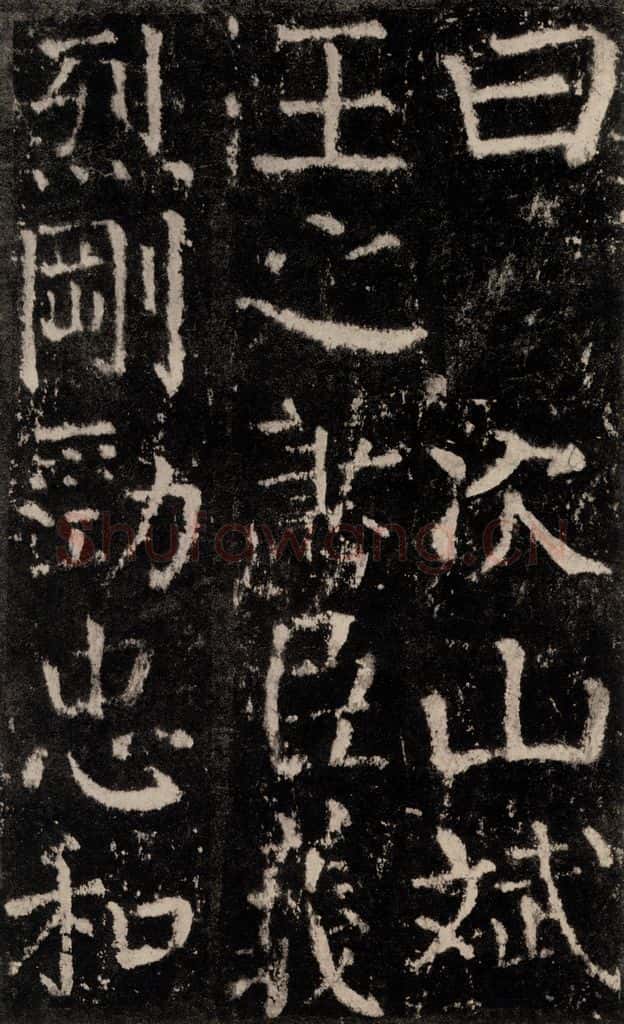 曰 次山斌
王之藎臣義
烈剛勁忠和
Shufawang.CN